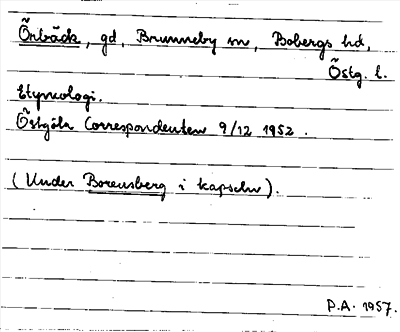 Örbäck, gd, Brunneby sn, Bobergs hd,
Östg. l.
Etymologi.
Östgöta Correspondenten 9/12 1952.
(Under Borensberg i kapseln).
P.A. 1957.